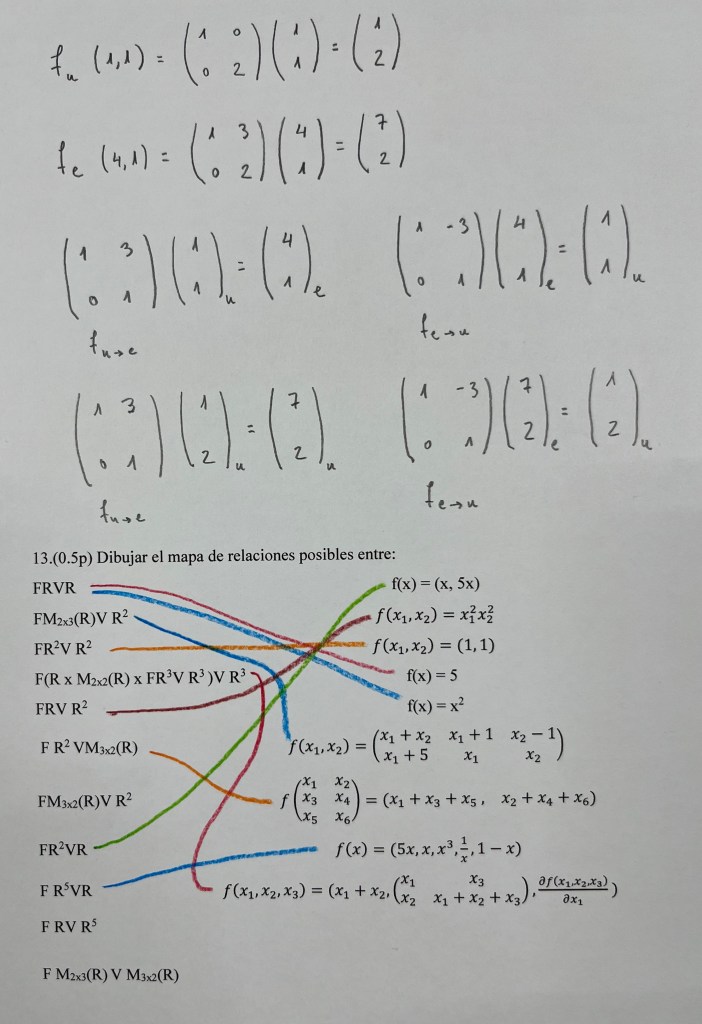 f_u (1,1) = (1 0 / 0 2) (1 / 1) = (1 / 2)
f_e (4,1) = (1 3 / 0 2) (4 / 1) = (7 / 2)
(1 3 / 0 1) (1 / 1)_u = (4 / 1)_e
f_{u→e}
(1 -3 / 0 1) (4 / 1)_e = (1 / 1)_u
f_{e→u}
(1 3 / 0 1) (1 / 2)_u = (7 / 2)_u
f_{u→e}
(1 -3 / 0 1) (7 / 2)_e = (1 / 2)_u
f_{e→u}
13.(0.5p) Dibujar el mapa de relaciones posibles entre:
FRVR
FM₂ₓ₃(R)V R²
FR²V R²
F(R x M₂ₓ₂(R) x FR³V R³ )V R³
FRV R²
F R² VM₃ₓ₂(R)
FM₃ₓ₂(R)V R²
FR²VR
F R⁵VR
F RV R⁵
F M₂ₓ₃(R) V M₃ₓ₂(R)
f(x) = (x, 5x)
f(x₁,x₂) = x₁²x₂²
f(x₁,x₂) = (1,1)
f(x) = 5
f(x) = x²
f(x₁,x₂) = (x₁ + x₂ x₁ + 1 x₂ − 1 / x₁ + 5 x₁ x₂)
f (x₁ x₂ / x₃ x₄ / x₅ x₆) = (x₁ + x₃ + x₅ , x₂ + x₄ + x₆)
f(x) = (5x, x, x³, 1/x, 1 − x)
f(x₁,x₂,x₃) = (x₁ + x₂, (x₁ x₃ / x₂ x₁ + x₂ + x₃), ∂f(x₁,x₂,x₃)/∂x₁)